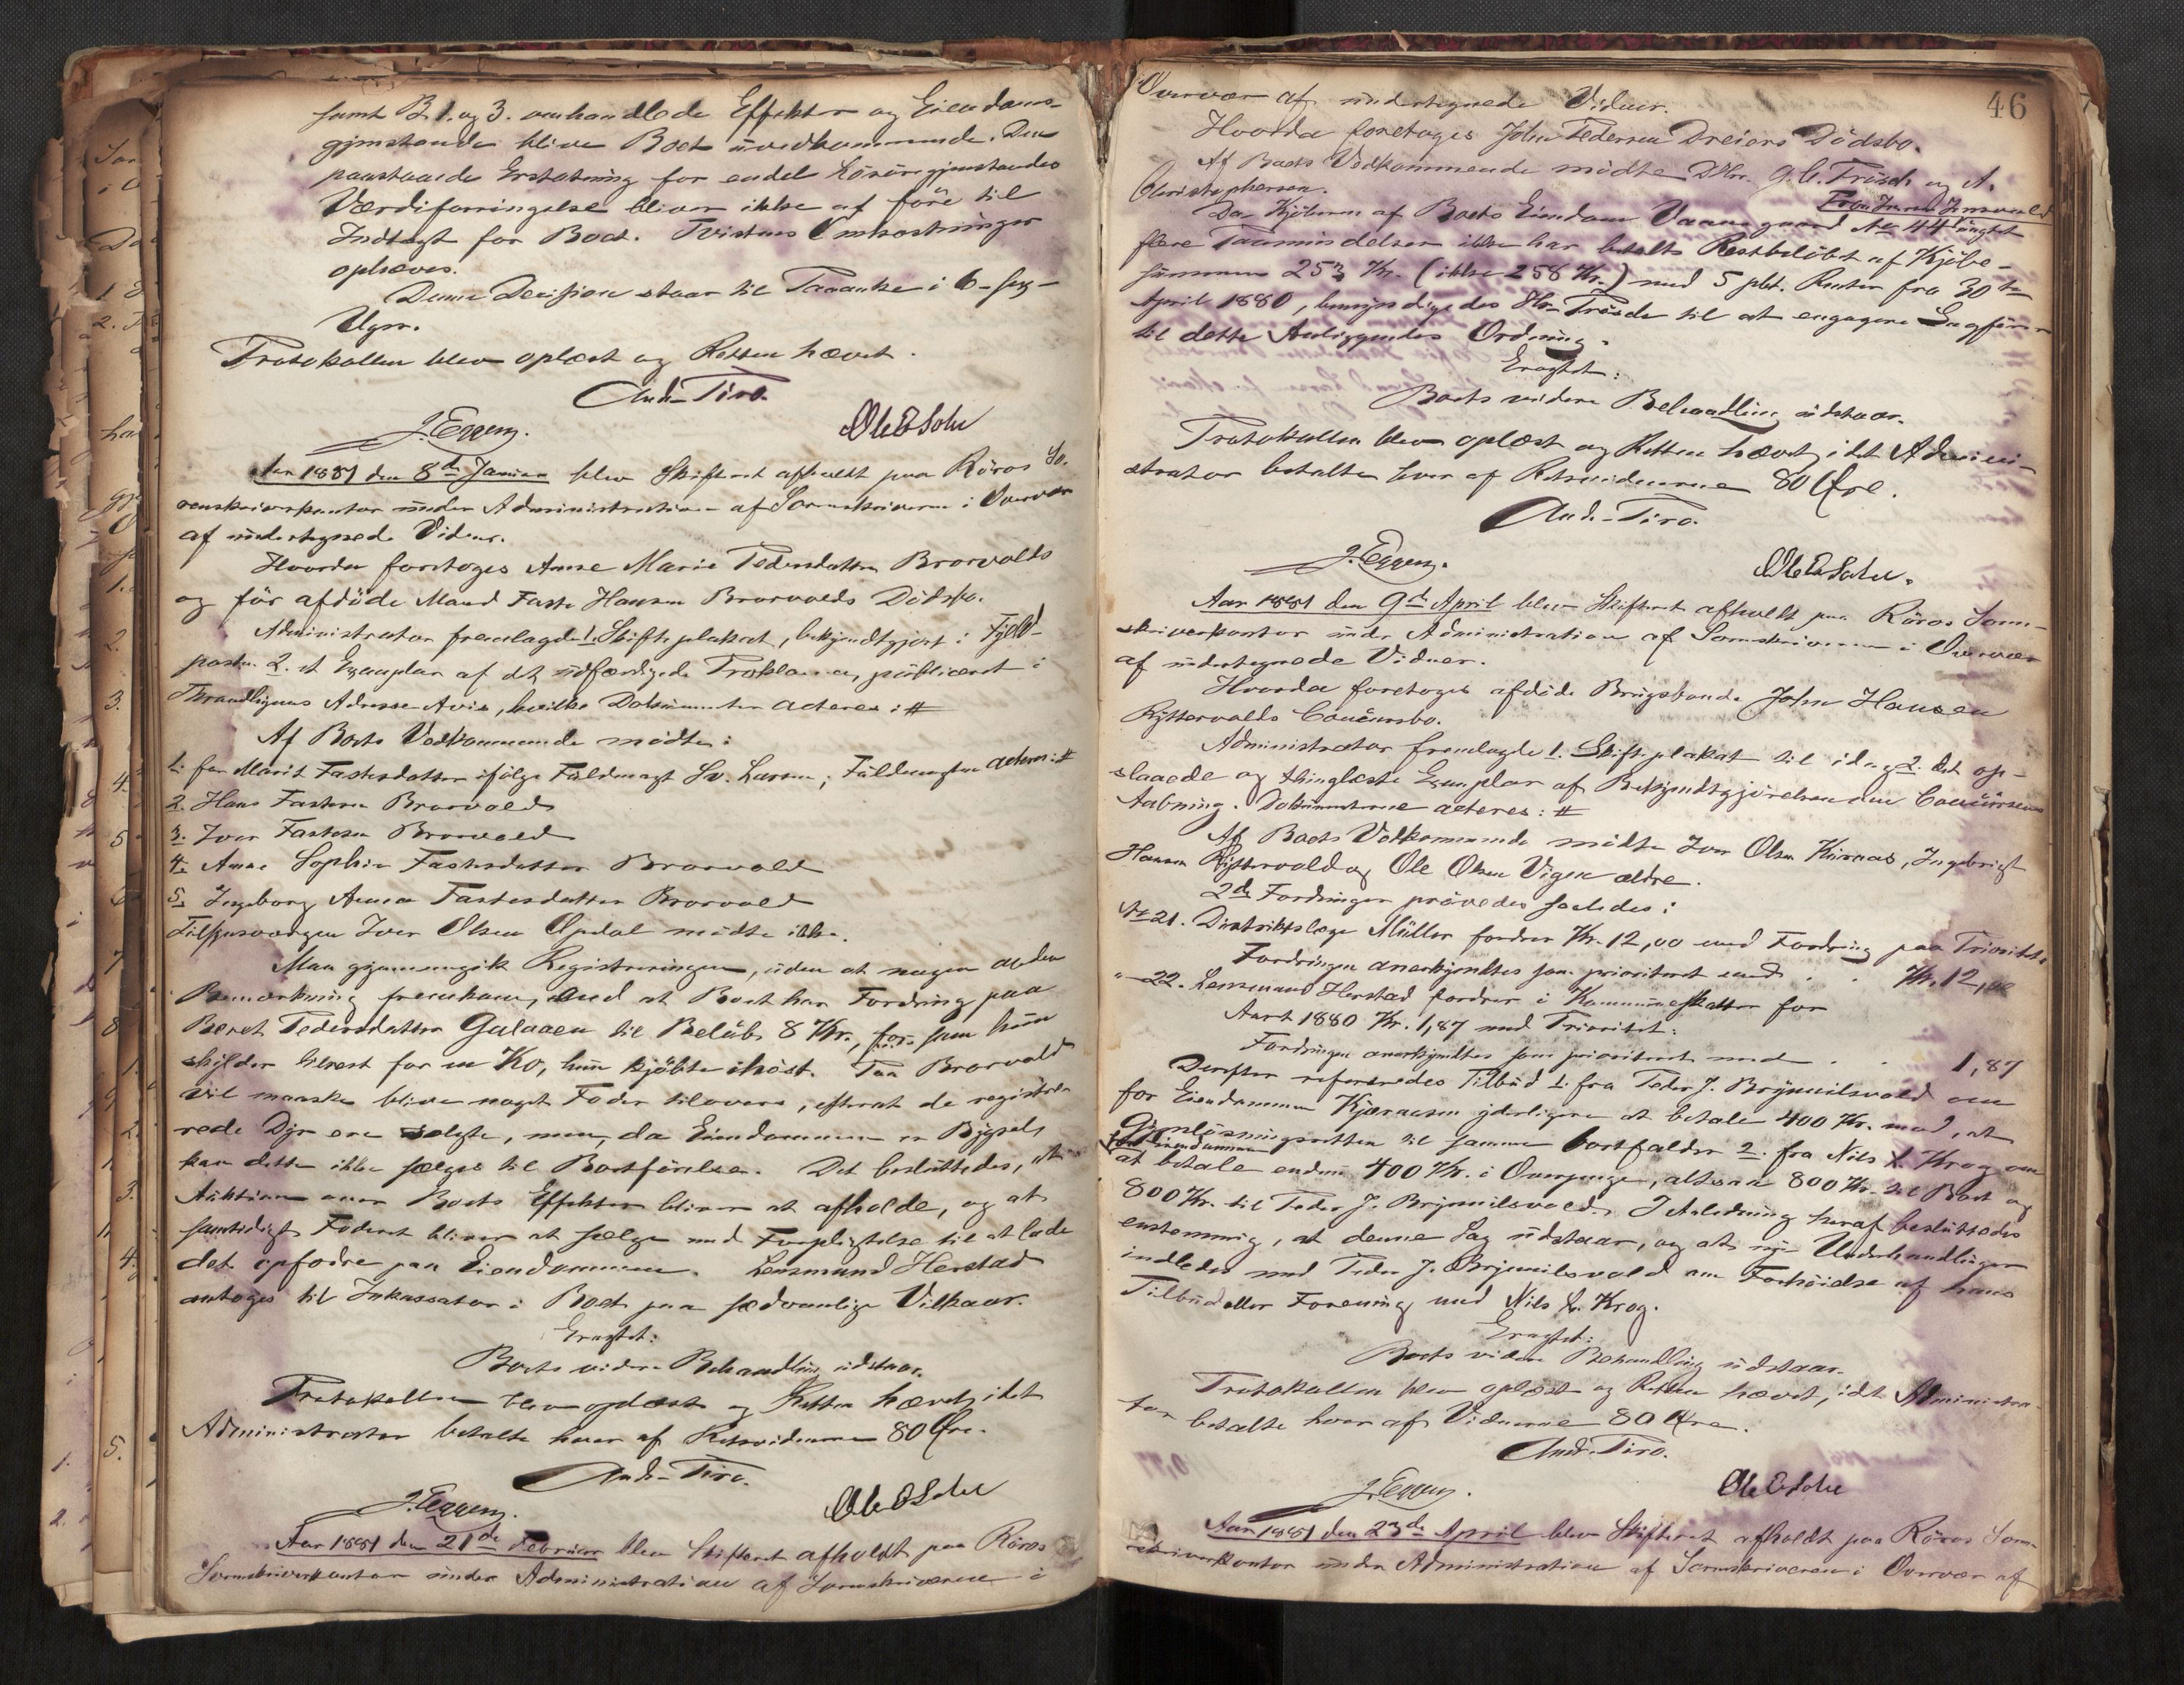 samt B. 1. og 3. omhandlede Effekter og Eiendoms-
gjenstande blive Boet uvedkommende. Den
paastaaede Erstatning for endel Løsøregjenstandes
Værdiforringelse bliver ikke at føre til
Indtægt for Boet. Tvistens Omkostninger
ophæves.
Denne Decision staar til Paaanke i 6 - sex -
Uger.
Protokollen blev oplæst og Retten hævet.
And. Piro.
J. Eggen. Ole E Sohu
Aar 1881 den 8de Januar blev Skifteret afholdt paa Røros So-
renskriverkontor under Administration af Sorenskriveren i Overvær
af undertegnede Vidner.
Hvorda foretoges Anne Marie Pedersdatter Brorvolds
og før afdøde Mand Faste Hansen Brorvolds Dødsbo.
Administrator fremlagde 1. Skifteplakat, bekjendtgjort i Fjeld-
posten 2. et Exemplar af det udfærdigede Proklama, publiceret i
Throndhjems Adresse-Avis, hvilke Dokumenter acteres: #
Af Boets Vedkommende mødte:
1. for Marit Fastesdatter ifølge Fuldmagt Sv. Larsen; Fuldmagten acteres: #
2. Hans Fastesen Brorvold
3. Iver Fastesen Brorvold
4. Anne Sophie Fastesdatter Brorvold
5. Ingeborg Anna Fastesdatter Brorvold
Tilsynsværgen Iver Olsen Opdal mødte ikke.
Man gjennemgik Registreringen, uden at nogen anden
Bemærkning fremkom, end at Boet har Fordring paa
Beret Pedersdatter Galaaen til Beløb 8 Kr., for som hun
skylder tilrest for en Ko, hun kjøbte ihøst. Paa Brorvold
vil maaske blive noget Foder tilovers, efterat de registre-
rede Dyr ere solgte, men, da Eiendommen er Bygsel,
kan dette ikke sælges til Bortførelse. Det besluttedes, at
Auktion over Boets Effekter bliver at afholde, og at
samtidigt Foderet bliver at sælge med Forpligtelse til at lade
det opfodre paa Eiendommen. Lensmand Herstad
antoges til Inkassator i Boet paa sædvanlige Vilkaar.
Eragtet:
Boets videre Behandling udstaar.
Protokollen blev oplæst og Retten hævet, idet
Administrator betalte hver af Retsvidnerne 80 Øre.
And. Piro.
J. Eggen. Ole E Sohu
Aar 1881 den 21de Februar blev Skifteret afholdt paa Røros
Sorenskriverkontor under Administration af Sorenskriveren i
46
Overvær af undertegnede Vidner.
Hvorda foretoges John Pedersen Dreiers Dødsbo.
Af Boets Vedkommende mødte DHrr. G. C. Frøsch og A.
Christophersen.
Da Kjøberen af Boets Eiendom Vaanegaard No 44
flere Paamindelser ikke har betalt Restbeløbet af Kjøbe-
summen 253 Kr. (ikke 258 Kr.) med 5 pCt. Renter fra 30te
April 1880, bemyndigedes Hr. Frøsch til at engagere Sagfører
til dette Anliggendes Ordning.
Eragtet:
Boets videre Behandling udstaar.
Protokollen blev oplæst og Retten hævet, idet Admini-
strator betalte hver af Retsvidnerne 80 Øre.
And. Piro.
J. Eggen. Ole E Sohu.
Aar 1881 den 9de April blev Skifteret afholdt paa Røros Soren-
skriverkontor under Administration af Sorenskriveren i Overvær
af undertegnede Vidner.
Hvorda foretoges afdøde Brugsbonde John Hansen
Ryttervolds Concursbo.
Administrator fremlagde 1. Skifteplakat til idag 2. det op-
slaaede og thinglæste Exemplar af Bekjendtgjørelsen om Concursens
Aabning. Dokumenterne acteres: #
Af Boets Vedkommende mødte Iver Olsen Kurraas, Ingebrigt
Hansen Ryttervold og Ole Olsen Vigen ældre.
2de Fordringer prøvedes saaledes:
No 21. Distriktslæge Müller fordrer Kr. 12,00 med Fordring paa Prioritet.
Fordringen anerkjendtes som prioriteret med . . Kr. 12,00
" 22. Lensmand Herstad fordrer i Kommuneskatter for
Aaret 1880 Kr. 1,87 med Prioritet.
Fordringen anerkjendtes som prioriteret med . . 1,87
Derefter refereredes Tilbud 1. fra Peder J. Brynnilsvold om
for Eiendommen Kjæraasen yderligere at betale 400 Kr. mod, at
Gjenløsningsretten til samme bortfalder 2. fra Nils Krog om
for Eiendommen
at betale endnu 400 Kr. i Overpenge, altsaa 800 Kr. til Boet og
800 Kr. til Peder J. Brynnilsvold. I Anledning heraf besluttedes
enstemmig, at denne Sag udstaar, og at nye Underhandlinger
indledes med Peder J. Brynnilsvold om Forhøielse af hans
Tilbud eller Forening med Nils Krog.
Eragtet:
Boets videre Behandling udstaar.
Protokollen blev oplæst og Retten hævet, idet Administra-
tor betalte hver af Vidnerne 80 Øre.
And. Piro.
J. Eggen. Ole E Sohu
Aar 1881 den 23de April blev Skifteret afholdt paa Røros Soren-
skriverkontor under Administration af Sorenskriveren i Overvær af